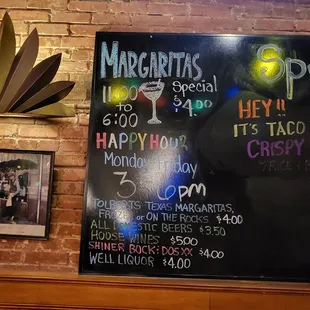 MARGARITAS
11:00 to 6:00
Special $4.00
HAPPY HOUR
Monday Friday
3 6pm
TOLBERTS TEXAS MARGARITAS,
FROZEN OR ON THE ROCKS $4.00
ALL DOMESTIC BEERS $3.50
HOUSE WINES $5.00
SHINER BOCK & DOS XX $4.00
WELL LIQUOR $4.00
Sp
HEY!!
IT'S TACO
CRISPY